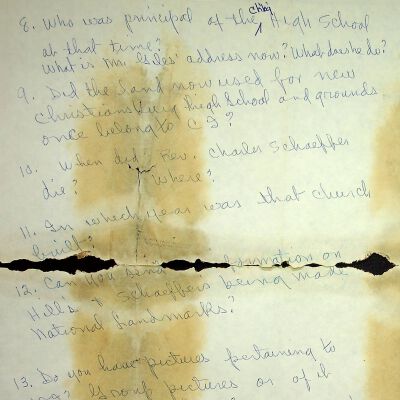 8. Who was principal of the Cbbg High School
at that time?
What is Mr. Giles' address now? What does he do?
9. Did the land now used for new
Christiansburg High School and grounds
once belong to CI?
10. When did Rev. Charles Schaeffer
die? Where?
11. In which year was that church
built?
12. Can you send information on
Hill's & Schaeffers being made
National Landmarks?
13. Do you have pictures pertaining to
Group pictures or of it